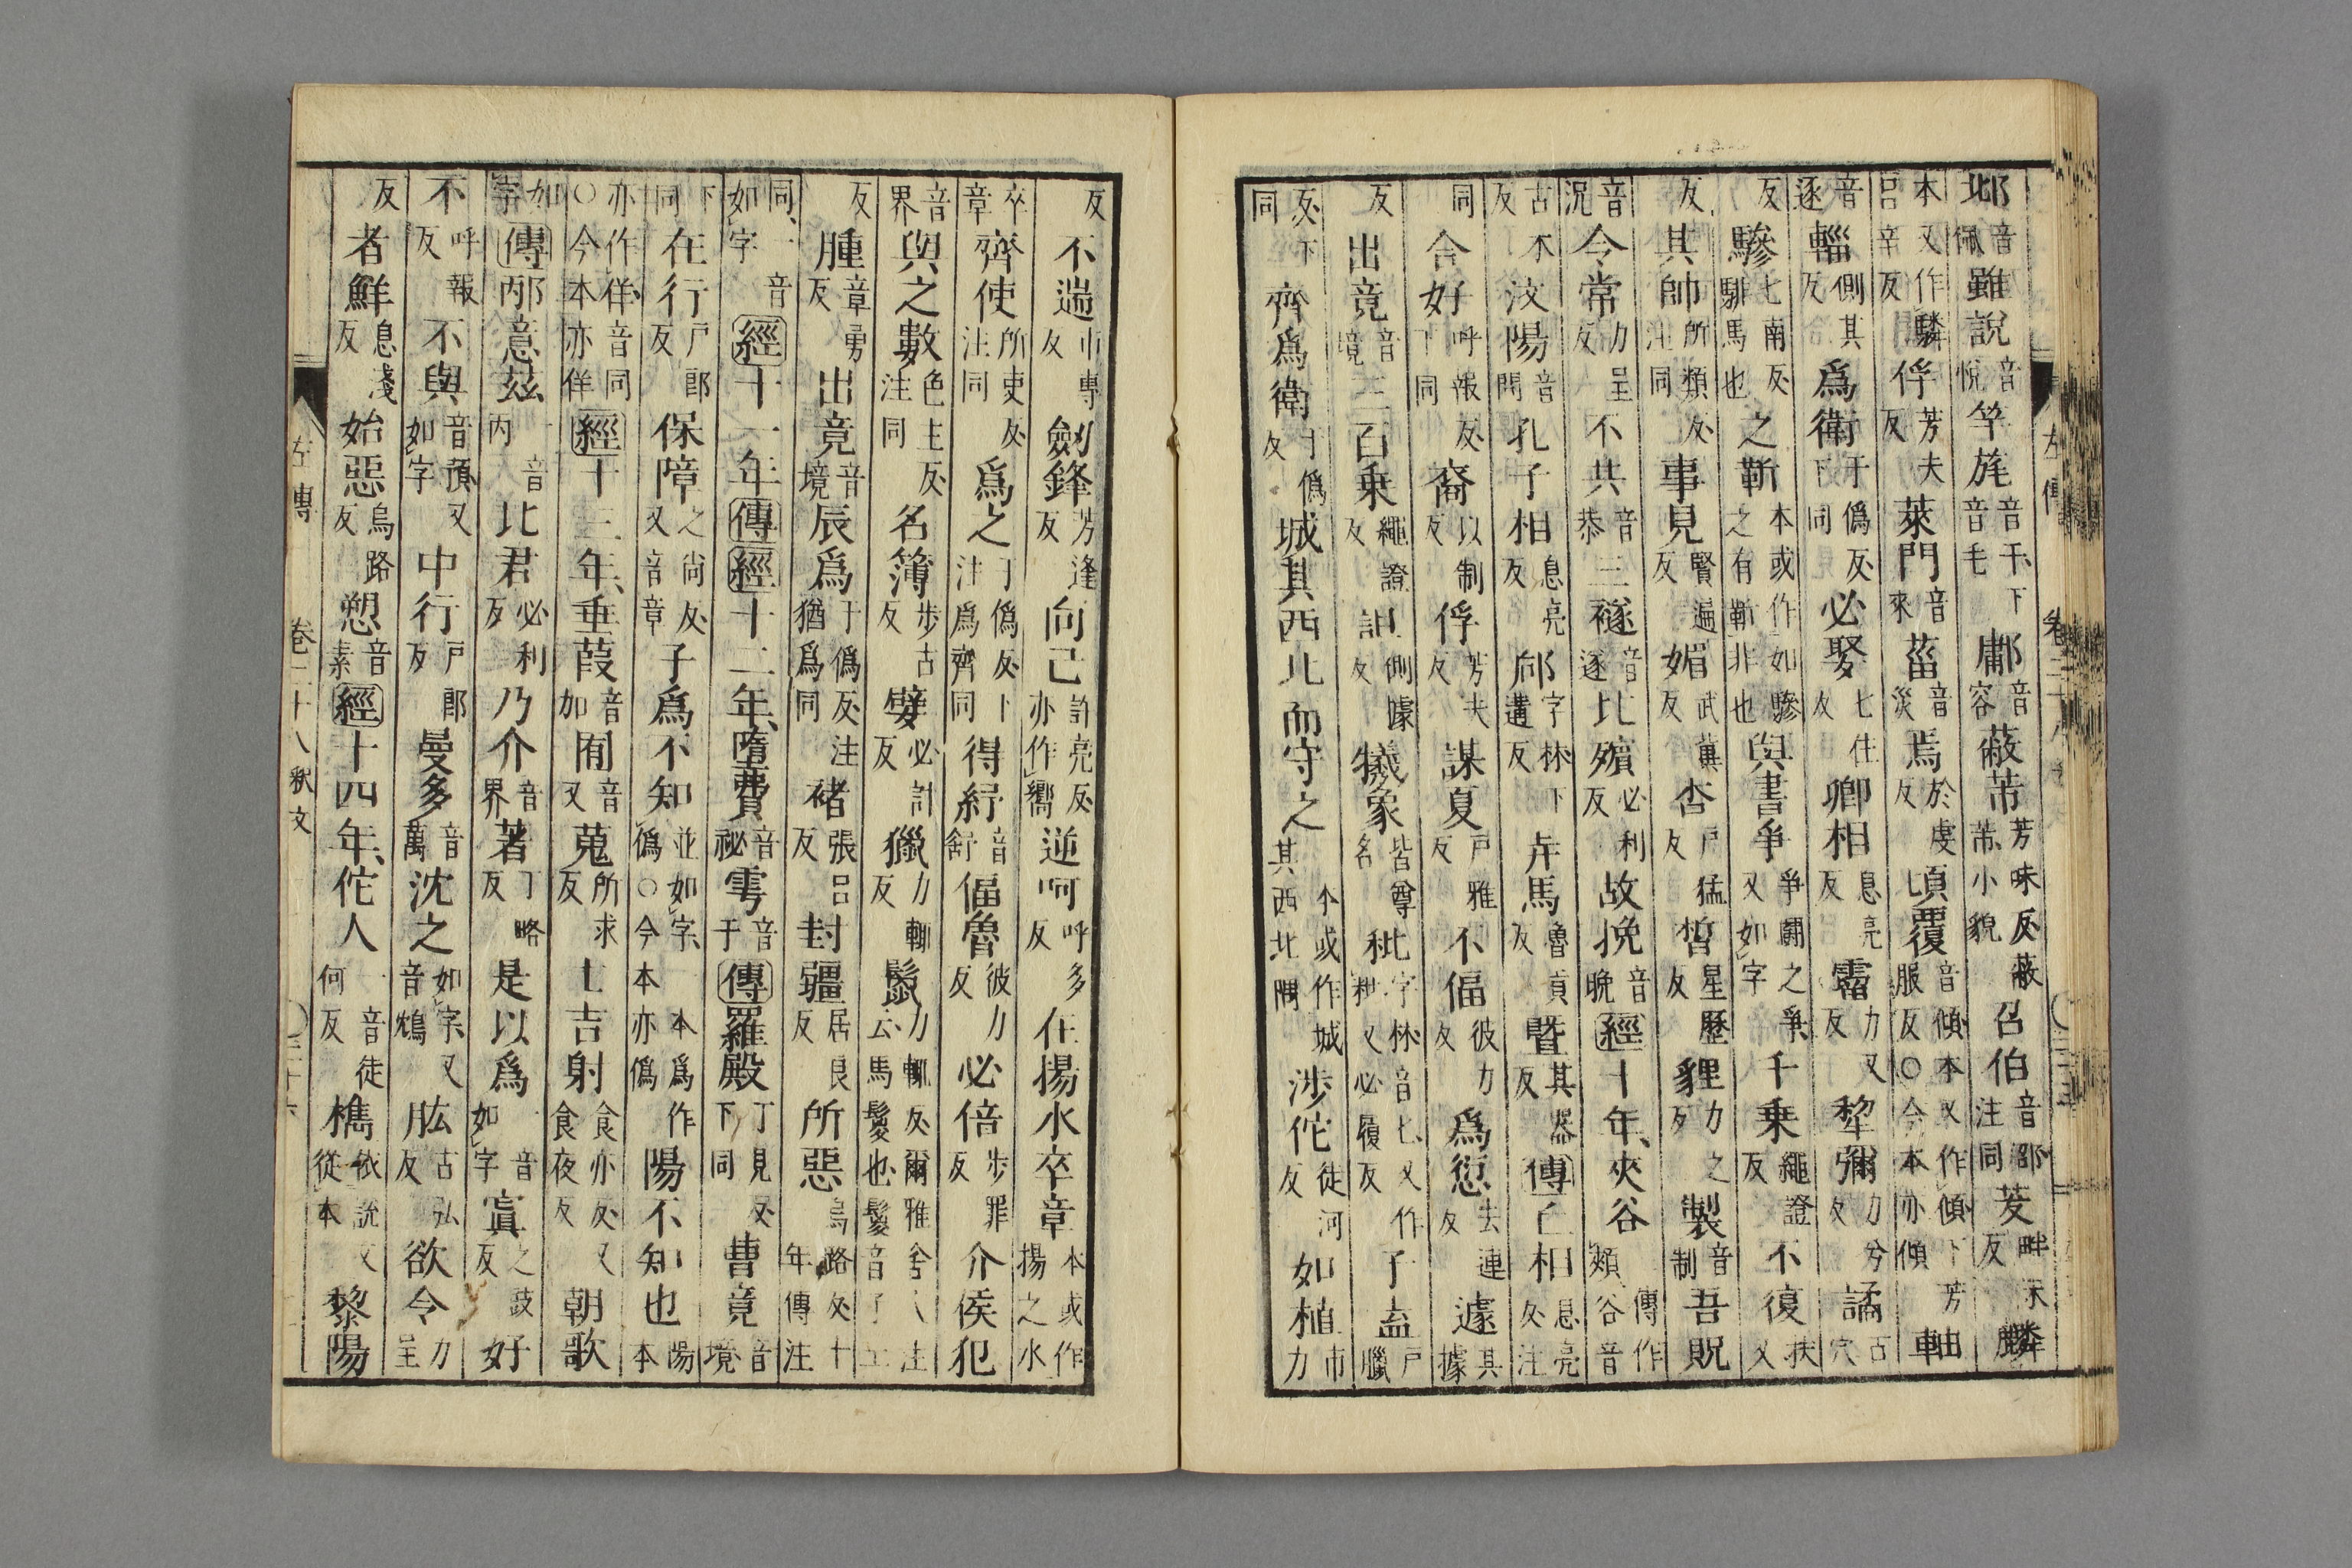 邶音佩雖說音悅竿旄音干下音毛鄘音容蔽芾芳味反蔽芾小貌召伯音邵注同茇畔末反麟
本又作驎吕辛反俘芳夫反萊門音來菑音災焉於虔反頃覆音傾本又作傾下芳服反○今本亦傾軸
音逐輜側其反爲衛于僞反下同必娶七住反卿相息亮反霤力又反犂彌力兮反譎古穴
反驂七南反騑馬也之靳本或作如驂之有靳非也與書爭爭鬬之爭又如字千乗繩證反不復扶又
反其帥所類反注同事見賢遍反媚武冀反杏戸猛反晳星歷反貍力之反製音制吾貺
音況今常力呈反不共音恭三襚音遂比殯必利反故挽音晚經十年夾谷傳作頰谷音
古木反汶陽音問孔子相息亮反郈字林下遘反弄馬魯貢反曁其器反傳丘相息亮反注
同合好呼報反下同裔以制反俘芳夫反謀夏戸雅反不偪彼力反爲愆去連反遽其據
反出竟音境三百乗繩證反詛側據反犧象皆尊名秕字林音匕又作粃又必履反子盍戸臘
反下同齊爲衛于僞反城其西北而守之本或作城其西北隅渉佗徒河反如植市力
左傳 卷二十八
反不遄市專反劒鋒芳逢反向己許亮反亦作嚮逆呵呼多反在揚水卒章本或作揚之水
卒章齊使所吏反注同爲之于僞反注爲齊同得紓音舒偪魯彼力反必倍步罪反介侯犯
音界與之數色主反注同名簿步古反嬖必計反獵力輒反鬛力輒反爾雅舍人注云馬鬉也鬉音子工
反腫章勇反出竟音境辰爲于僞反注猶爲同褚張吕反封疆居良反所惡烏路反十年傳注
同一音如字經十一年傳經十二年墮費音祕雩音于傳羅殿丁見反下同曹竟音境
下同在行戸郎反保障之尚反又音章子爲不知並如字一本爲作僞○今本亦僞陽不知也陽本
亦作佯音同○今本亦佯經十三年垂葭音加囿音又蒐所求反士吉射食亦反又食夜反朝歌
如字傳邴意茲一音丙比君必利反乃介音界著丁略反是以爲一音如字寘之豉反好
不呼報反不與音預又如字中行戸郎反曼多音萬沈之如字又音鴆肱古弘反欲令力呈
反者鮮息淺反始惡烏路反愬音素經十四年佗人一音徒何反檇依說文從木黎陽
左傳 卷二十八 釈文 三十六